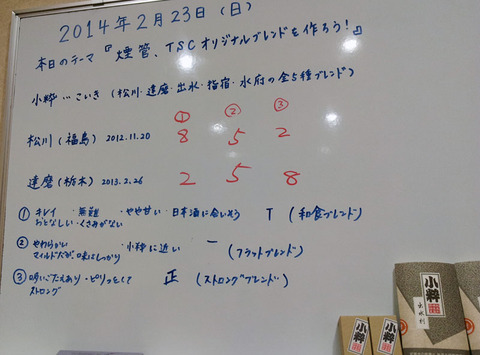 2014年2月23日(日)
本日のテーマ『煙管、TSCオリジナルブレンドを作ろう!』
小粋…こいき(松川・達磨・出水・指宿・水府の全5種ブレンド)
① ② ③
松川(福島) 2012.11.20 8 5 2
達磨(栃木) 2013.2.26 2 5 8
① キレイ ・無難 ・やや甘い ・日本酒に合いそう T (和食ブレンド)
おとなしい・くさみがない
② やわらかい ・小粋に近い 一 (フラットブレンド)
マイルドだが味はしっかり
③ 吸いごたえあり ・ピリッとくる 正 (ストロングブレンド)
ストロング
小粋
出水刻
小粋
小粋